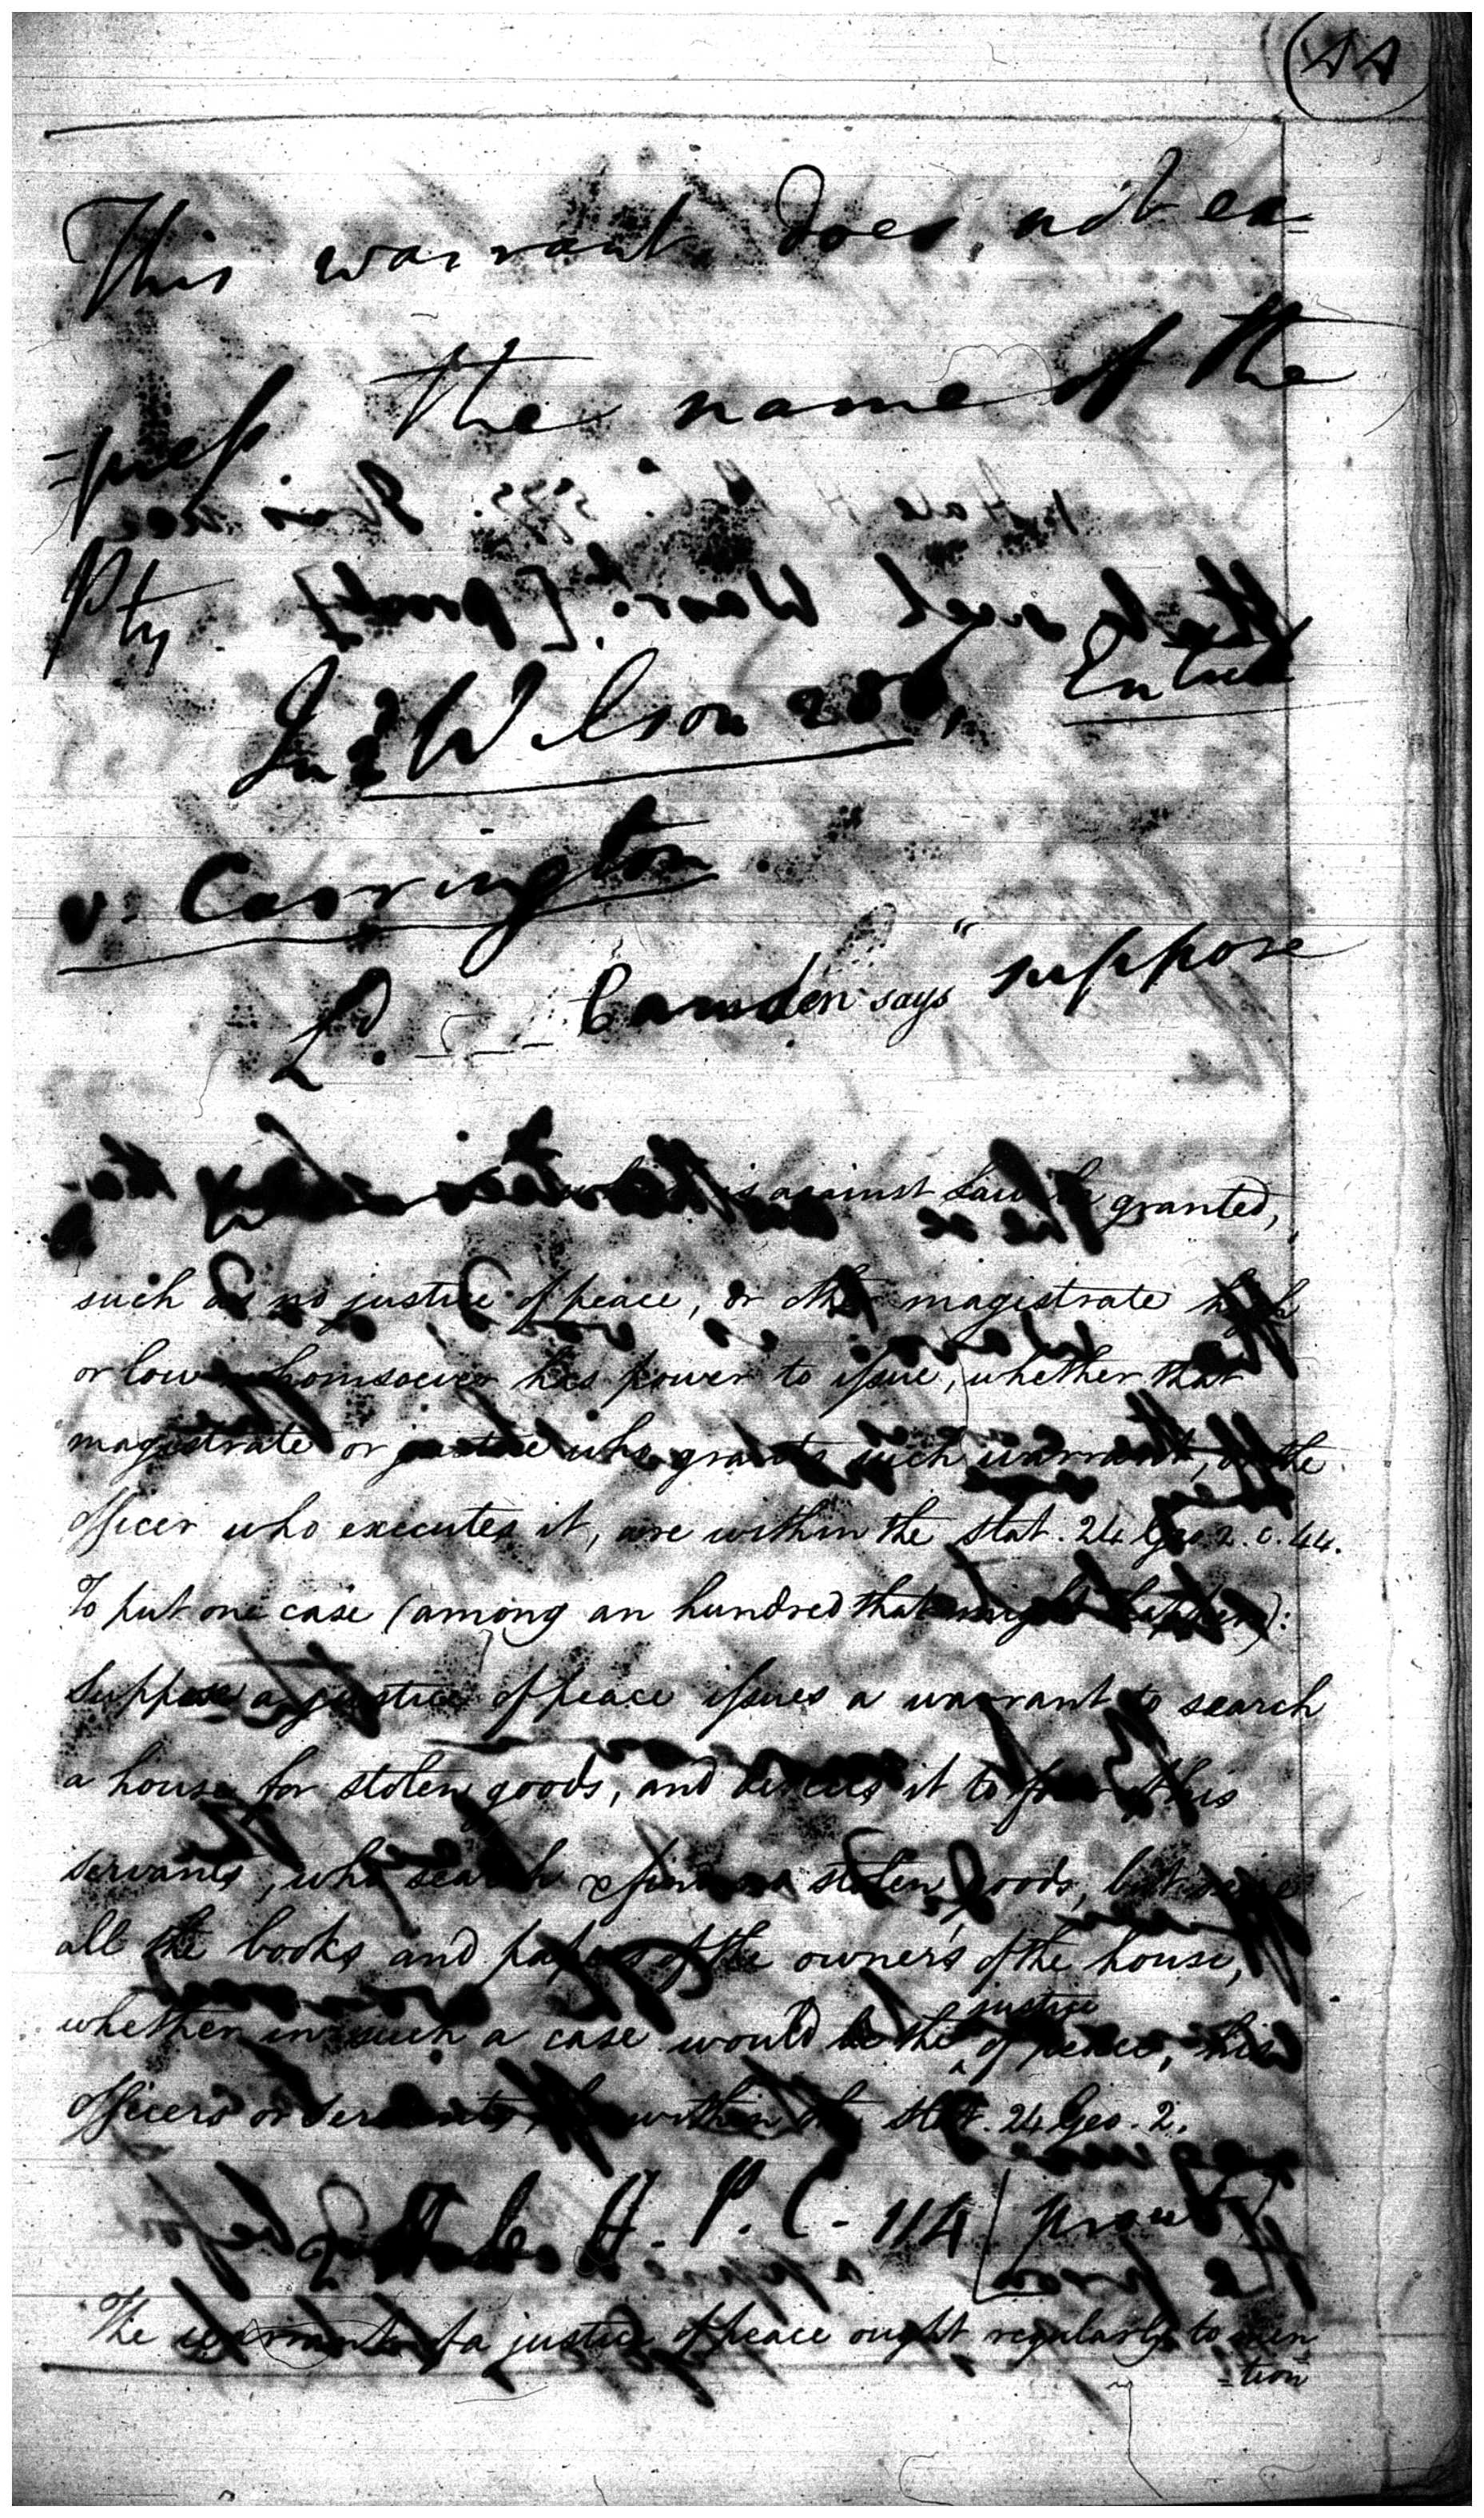 44
This warrant does not ex=
=press the name of the
Pty.
In 2 Wilson 286, Entick
v: Carrington
Ld. Camden says "suppose
which is against law be granted,
such as no justice of peace, or other magistrate high
or low whomsoever has power to issue, whether that
magistrate or justice who grants such warrant, or the
officer who executes it, are within the stat. 24 Geo. 2. c. 44.
To put one case (among an hundred that might happen):
Suppose a justice of peace issues a warrant to search
a house for stolen goods, and directs it to four of his
servants, who search & find no stolen goods, but seize
all the books and papers of the owners of the house,
whether in such a case would be the justice of peace, his
officers or servants, be within the stat. 24 Geo. 2.
2 Hale H. P. C. 114 [
The warrant of a justice of peace ought regularly to men
=tion